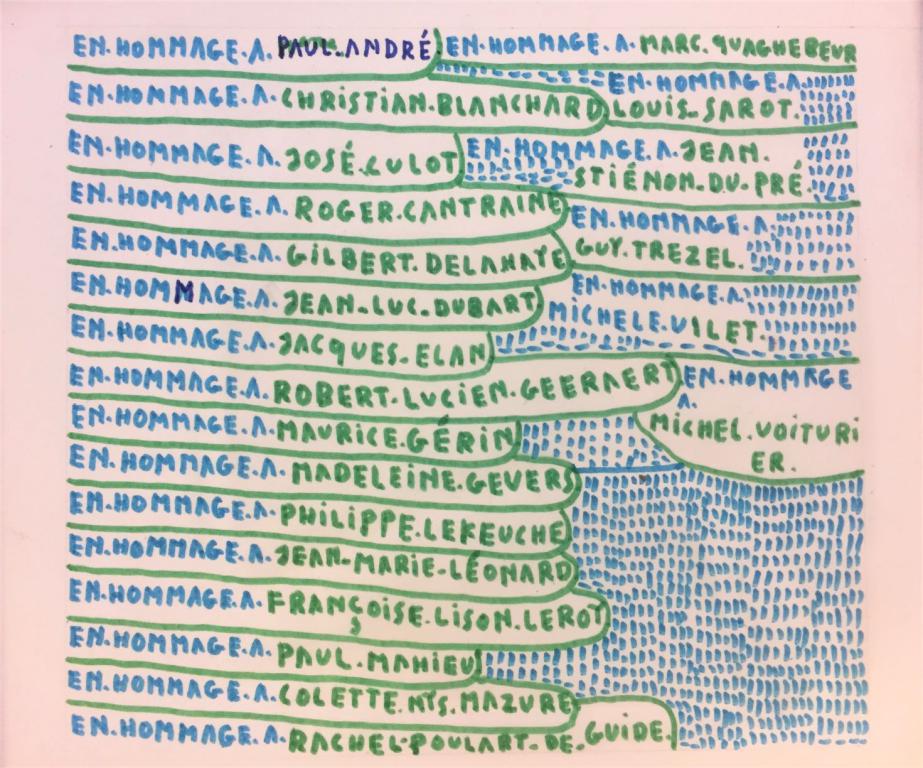 EN.HOMMAGE.A. PAUL.ANDRÉ
EN.HOMMAGE.A. MARC.QUAGHEBEUR
EN.HOMMAGE.A. CHRISTIAN.BLANCHARD
EN.HOMMAGE.A.
LOUIS.SAROT.
EN.HOMMAGE.A. JOSÉ.CULOT
EN.HOMMAGE.A. JEAN.
STIÉNON.DU.PRÉ.
EN.HOMMAGE.A. ROGER.CANTRAINE
EN.HOMMAGE.A.
GUY.TREZEL.
EN.HOMMAGE.A. GILBERT.DELAHAYE
EN.HOMMAGE.A. JEAN-LUC.DUBART
EN.HOMMAGE.A.
MICHELE.VILET.
EN.HOMMAGE.A. JACQUES.ELAN
EN.HOMMAGE.A. ROBERT.LUCIEN.GEERAERT
EN.HOMMAGE
A.
MICHEL.VOITURI
ER.
EN.HOMMAGE.A. MAURICE.GÉRIN
EN.HOMMAGE.A. MADELEINE.GEVERS
EN.HOMMAGE.A. PHILIPPE.LEKEUCHE
EN.HOMMAGE.A. JEAN-MARIE-LÉONARD
EN.HOMMAGE.A. FRANÇOISE.LISON.LEROY
EN.HOMMAGE.A. PAUL.MAHIEU
EN.HOMMAGE.A. COLETTE.NYS.MAZURE
EN.HOMMAGE.A. RACHEL-POULART-DE.GUIDE.